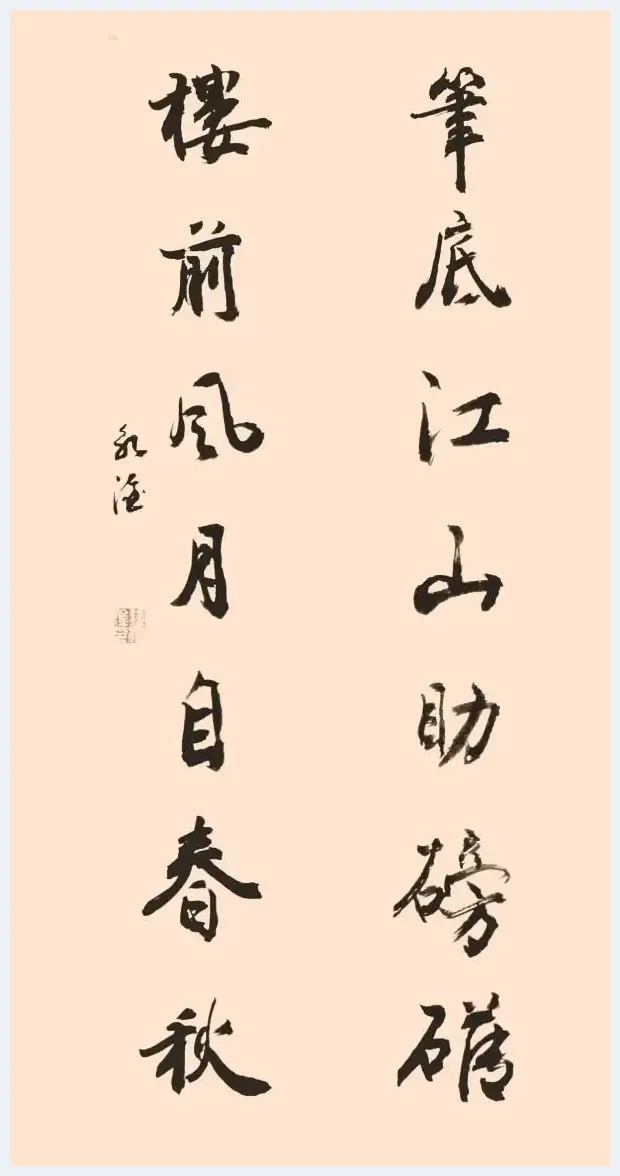 筆底江山助磅礴
樓前風月自春秋
永